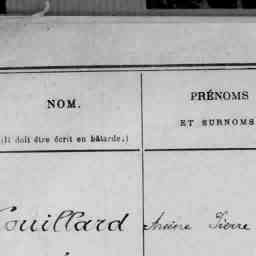 NOM.
(Il doit être écrit en bâtarde.)
PRÉNOMS
ET SURNOMS
ouillard
Pierre